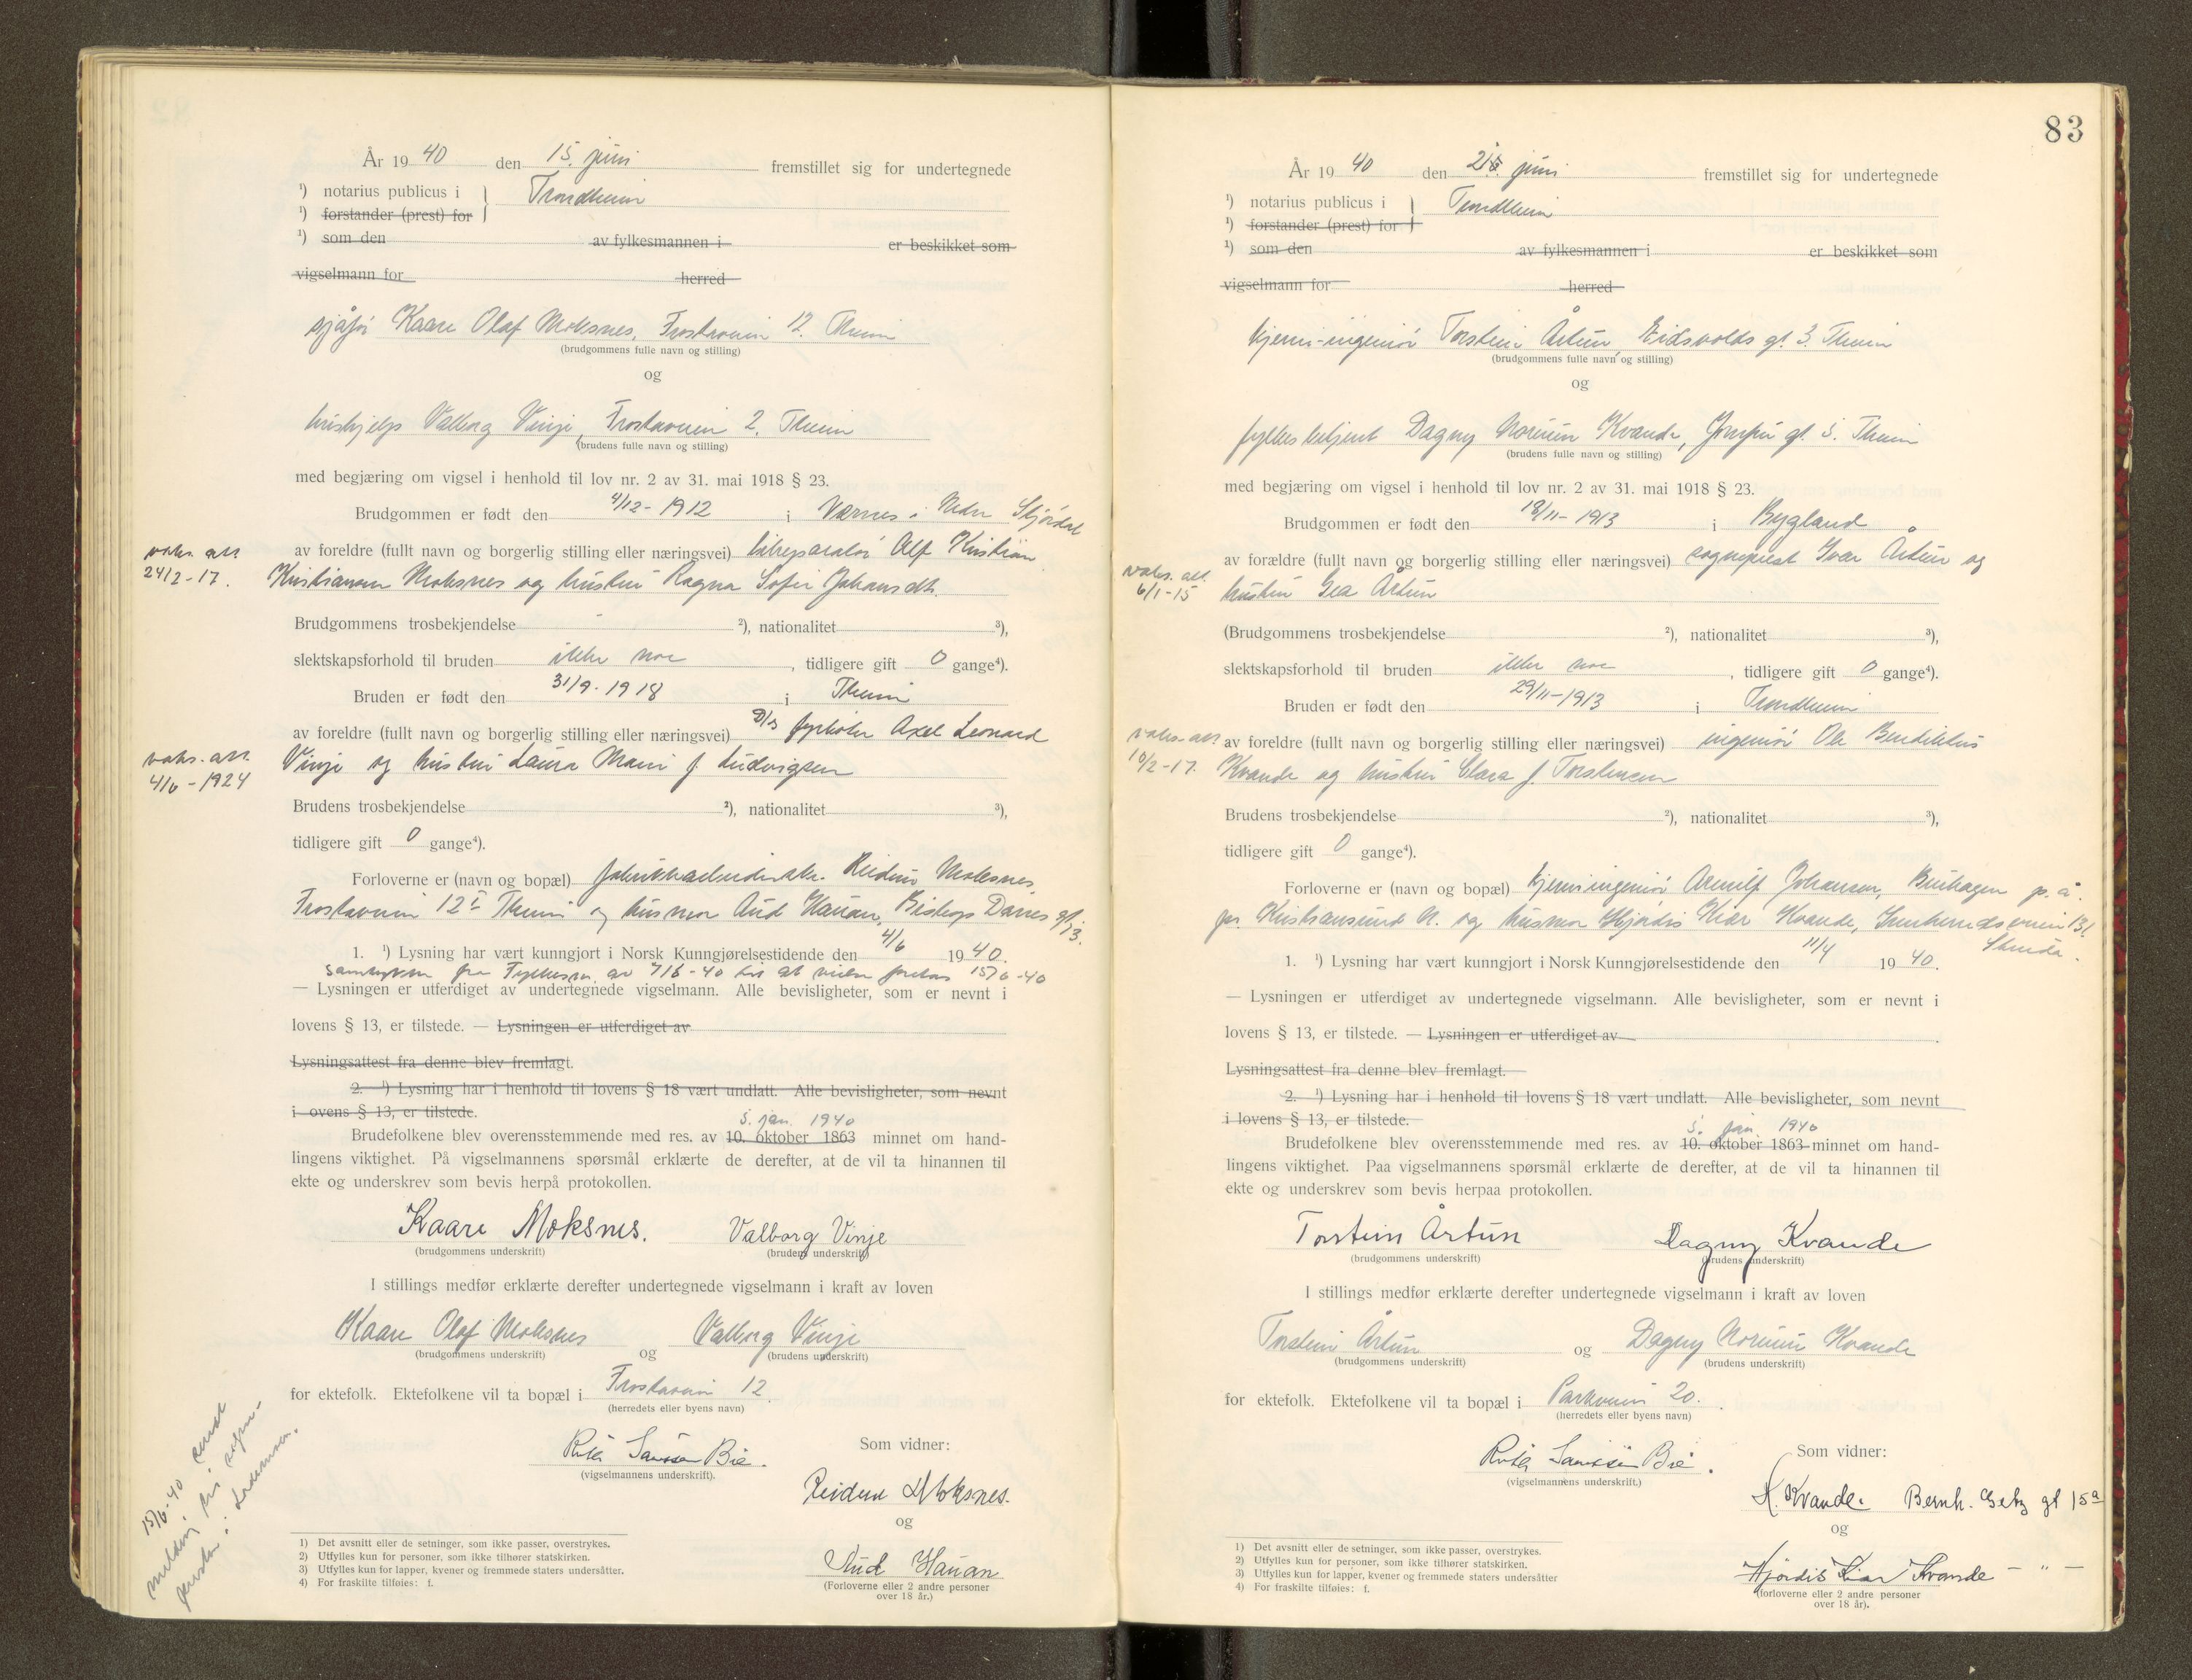 År 19 40 den 15. juni fremstillet sig for undertegnede
¹) notarius publicus i } Trondheim
¹) forstander (prest) for
¹) som den av fylkesmannen i er beskikket som
vigselmann for herred
sjåfør Kaare Olaf Moksnes, Frostaveien 12. Theim
(brudgommens fulle navn og stilling)
og
hushjelp Valborg Vinje, Frostaveien 2. Theim
(brudens fulle navn og stilling)
med begjæring om vigsel i henhold til lov nr. 2 av 31. mai 1918 § 23.
Brudgommen er født den 4/12 - 1912 i Værnes i Nedre Stjørdal
vaks. att.
24/2 - 17.
av foreldre (fullt navn og borgerlig stilling eller næringsvei) bilreparatør Alf Kristian
Kristiansen Moksnes og hustru Ragna Sofie Johansdtr.
Brudgommens trosbekjendelse - ²), nationalitet ³),
slektskapsforhold til bruden ikke noe , tidligere gift 0 gange⁴).
Bruden er født den 31/9 - 1918 i Theim
av foreldre (fullt navn og borgerlig stilling eller næringsvei) fyrbøter Axel Leonard
vaks. att.
4/6 - 1924
Vinje og hustru Laura Marie f. Ludvigsen
Brudens trosbekjendelse ²), nationalitet ³),
tidligere gift 0 gange⁴).
Forloverne er (navn og bopæl) fabrikkarbeiderske Reidun Moksnes,
Frostaveien 12 I Theim og husmor Aud Hauan, Bishop Darres gt. 13.
1. ¹) Lysning har vært kunngjort i Norsk Kunngjørelsestidende den 4/6 19 40.
samtykke fra Fylkesm. av 7/6 - 40 til at vielse foretas 15/6 - 40
— Lysningen er utferdiget av undertegnede vigselmann. Alle bevisligheter, som er nevnt i
lovens § 13, er tilstede. — Lysningen er utferdiget av
Lysningsattest fra denne blev fremlagt.
2. ¹) Lysning har i henhold til lovens § 18 vært undlatt. Alle bevisligheter, som nevnt
i ovens § 13, er tilstede.
5. jan. 1940
Brudefolkene blev overensstemmende med res. av 10. oktober 1863 minnet om hand-
lingens viktighet. På vigselmannens spørsmål erklærte de derefter, at de vil ta hinannen til
ekte og underskrev som bevis herpå protokollen.
Kaare Moksnes. Valborg Vinje
(brudgommens underskrift) (brudens underskrift)
I stillings medfør erklærte derefter undertegnede vigselmann i kraft av loven
Kaare Olaf Moksnes og Valborg Vinje
(brudgommens underskrift) (brudens underskrift)
for ektefolk. Ektefolkene vil ta bopæl i Frostaveien 12
(herredets eller byens navn)
Bie.
(vigselmannens underskrift).
Som vidner:
Reidun Moksnes.
og
Aud Hauan
(Forloverne eller 2 andre personer
over 18 år.)
15/6-40 sendt
melding til sogne-
presten i
1) Det avsnitt eller de setninger, som ikke passer, overstrykes.
2) Utfylles kun for personer, som ikke tilhører statskirken.
3) Utfylles kun for lapper, kvener og fremmede staters undersåtter.
4) For fraskilte tilføies: f.
83
År 19 40 den juni fremstillet sig for undertegnede
¹) notarius publicus i } Trondheim
¹) forstander (prest) for
¹) som den av fylkesmannen i er beskikket som
vigselmann for herred
kjemi-ingeniør Torstein Årtun, Eidsvolds gt. 3. Theim
(brudgommens fulle navn og stilling)
og
Dagny Kvande, gt. 5. Theim
(brudens fulle navn og stilling)
med begjæring om vigsel i henhold til lov nr. 2 av 31. mai 1918 § 23.
Brudgommen er født den 18/11 - 1913 i Bygland
av forældre (fullt navn og borgerlig stilling eller næringsvei) sogneprest Ivar Årtun og
vaks. att.
6/1 - 15
hustru Gea Årtun
(Brudgommens trosbekjendelse ²), nationalitet ³),
slektskapsforhold til bruden ikke noe , tidligere gift 0 gange⁴).
Bruden er født den 29/11 - 1913 i Trondheim
vaks. att.
10/2 - 17.
av foreldre (fullt navn og borgerlig stilling eller næringsvei) ingeniør Ole Bendiktus
Kvande og hustru Clara f. Torstensen
Brudens trosbekjendelse ²), nationalitet ³),
tidligere gift 0 gange⁴).
Forloverne er (navn og bopæl) kjemiingeniør Arnulf Johansen, p. å.
pr. Kristiansund N. og husmor Hjørdis Kiær Kvande, 131
1. ¹) Lysning har vært kunngjort i Norsk Kunngjørelsestidende den 11/4 19 40.
— Lysningen er utferdiget av undertegnede vigselmann. Alle bevisligheter, som er nevnt i
lovens § 13, er tilstede. — Lysningen er utferdiget av .
Lysningsattest fra denne blev fremlagt.
2. ¹) Lysning har i henhold til lovens § 18 vært undlatt. Alle bevisligheter, som nevnt
i lovens § 13, er tilstede.
5. jan 1940
Brudefolkene blev overensstemmende med res. av 10. oktober 1863 minnet om hand-
lingens viktighet. Paa vigselmannens spørsmål erklærte de derefter, at de vil ta hinannen til
ekte og underskrev som bevis herpaa protokollen.
Torstein Årtun Dagny Kvande
(brudgommens underskrift) (brudens underskrift)
I stillings medfør erklærte derefter undertegnede vigselmann i kraft av loven
Torstein Årtun og Dagny Kvande
(brudgommens underskrift) (brudens underskrift)
for ektefolk. Ektefolkene vil ta bopæl i Parkveien 20.
(herredets eller byens navn)
Bie.
(vigselmannens underskrift.)
Som vidner:
K. Kvande. Bernh. Getz gt 15a
og
Hjørdis Kiær Kvande — " —
(forloverne eller 2 andre personer
over 18 år).
1) Det avsnitt eller de setninger, som ikke passer, overstrykes.
2) Utfylles kun for personer, som ikke tilhører statskirken.
3) Utfylles kun for lapper, kvener og fremmede staters undersåtter
4) For fraskilte tilføies: f.